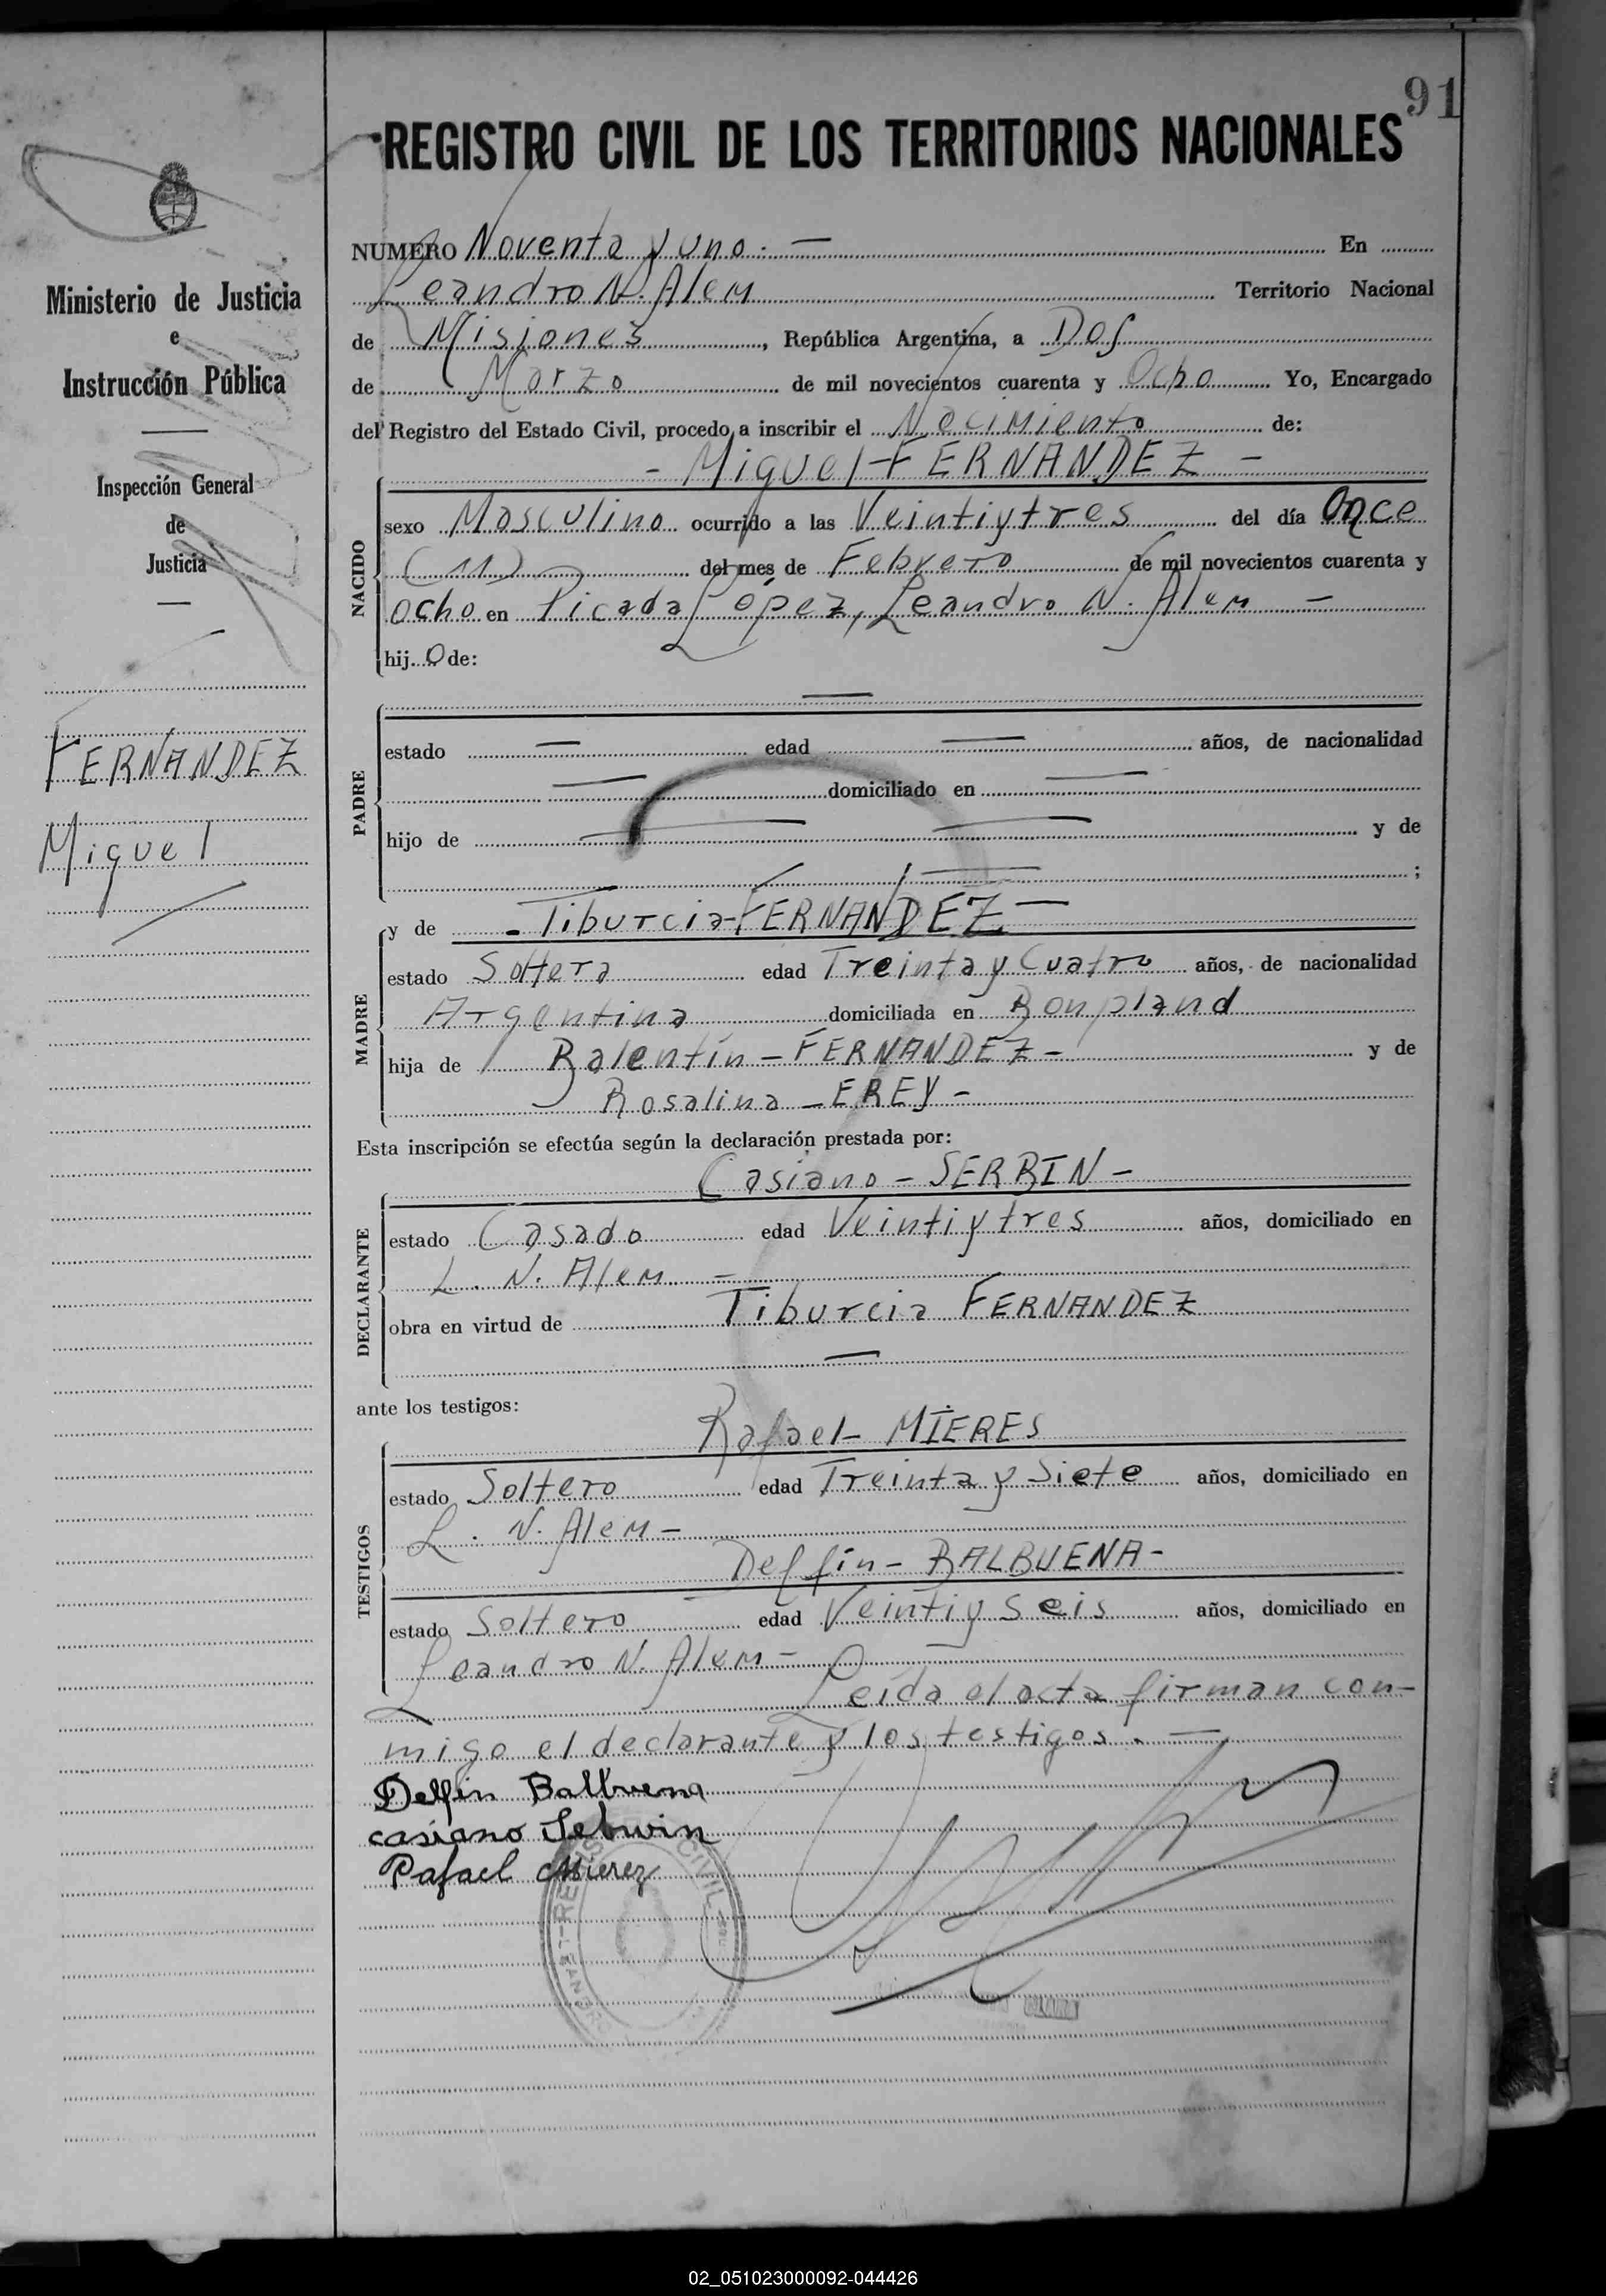 91
REGISTRO CIVIL DE LOS TERRITORIOS NACIONALES
Ministerio de Justicia
e
Instrucción Pública
Inspección General
de
Justicia
FERNANDEZ
Miguel
NUMERO Noventa y uno. — En
Leandro N. Alem Territorio Nacional
de Misiones, República Argentina, a Dos
de Marzo de mil novecientos cuarenta y Ocho Yo, Encargado
del Registro del Estado Civil, procedo a inscribir el Nacimiento de:
- Miguel - FERNANDEZ -
NACIDO
sexo Masculino ocurrido a las Veintiytres del día Once
(11) del mes de Febrero de mil novecientos cuarenta y
ocho en Picada López, Leandro N. Alem —
hij o de:
—
PADRE
estado — edad — años, de nacionalidad
— domiciliado en —
hijo de — — y de
— ;
MADRE
y de - Tiburcia - FERNANDEZ —
estado Soltera edad Treinta y Cuatro años, de nacionalidad
Argentina domiciliada en Bonpland
hija de Balentín - FERNANDEZ - y de
Rosalina - EREY -
Esta inscripción se efectúa según la declaración prestada por:
Casiano - SERBIN -
DECLARANTE
estado Casado edad Veintiytres años, domiciliado en
L. N. Alem —
obra en virtud de Tiburcia FERNANDEZ
—
ante los testigos:
Rafael - MIERES
TESTIGOS
estado Soltero edad Treinta y Siete años, domiciliado en
L. N. Alem -
Delfín - BALBUENA -
estado Soltero edad Veintiy seis años, domiciliado en
Leandro N. Alem -
Leída el acta firman con-
migo el declarante y los testigos. —
Delfin Balbuena
casiano Sebwin
Rafael Mierez
CIVIL
02_051023000092-044426